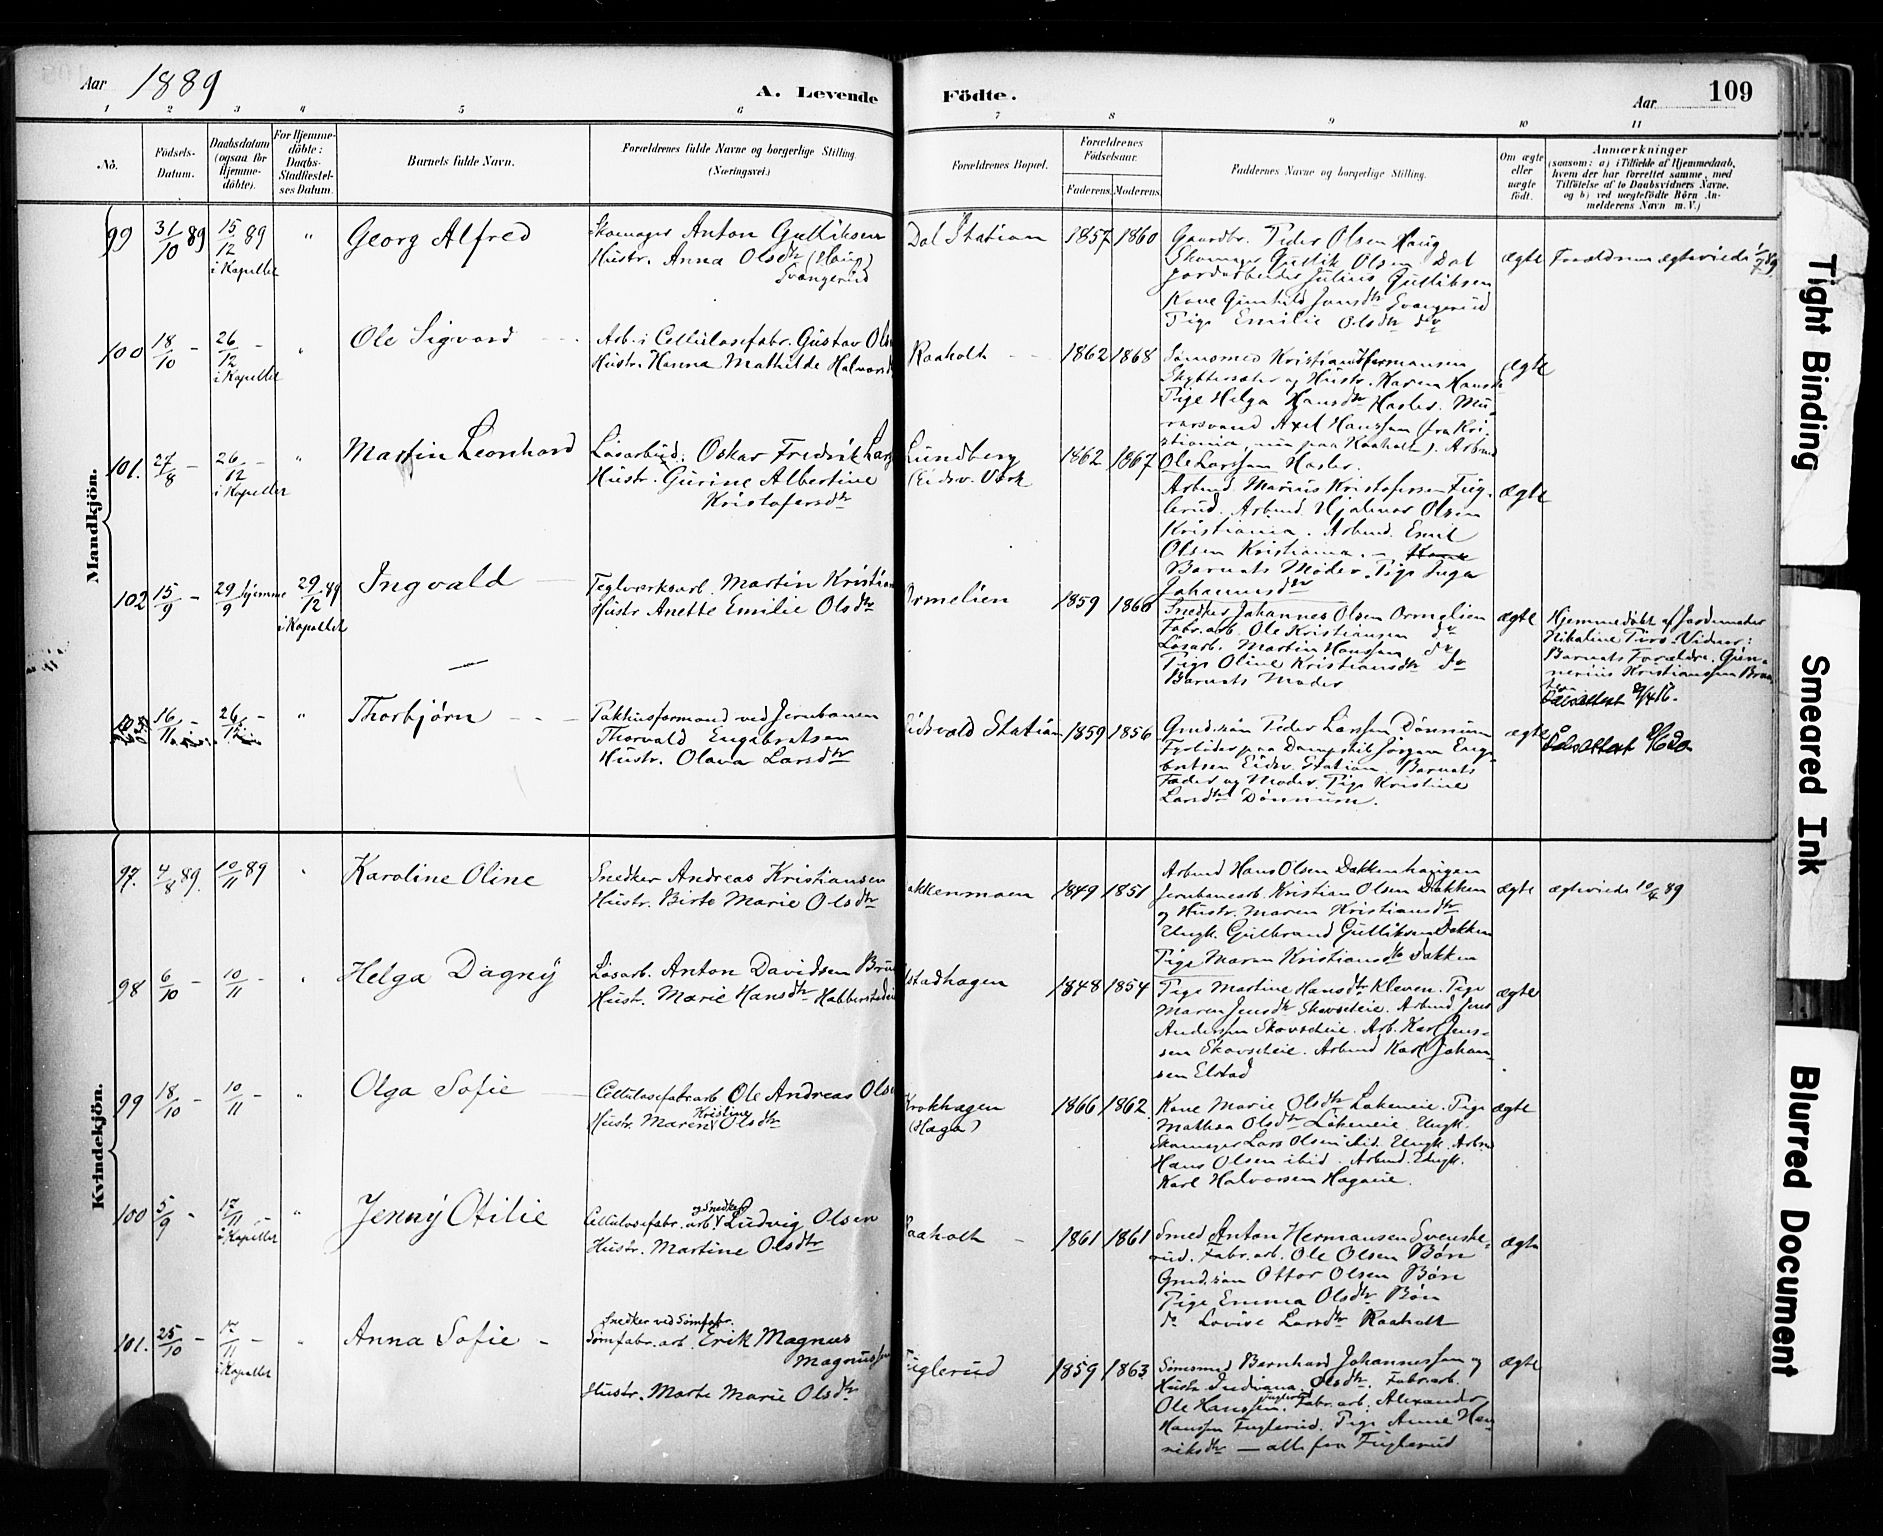 Aar 1889
A. Levende Födte.
Aar 109
1 2 3 4 5 6 7 8 9 10 11
No.
Födsels-
Datum.
Daabsdatum
(ogsaa for
Hjemme-
döbte).
For Hjemme-
döbte:
Daabs-
Stadfæstel-
ses Datum.
Barnets fulde Navn.
Forældrenes fulde Navne og borgerlige Stilling
(Næringsvei.)
Forældrenes Bopæl.
Forældrenes
Födselsaar.
Faderens. Moderens.
Faddernes Navne og borgerlige Stilling.
Om ægte
eller
uægte
födt.
Anmærkninger
(saasom: a) i Tilfælde af Hjemmedaab,
hvem der har forrettet samme, med
Tilföielse af to Daabsvidners Navne,
og b) ved uægtefödte Börn An-
melderens Navn m. V.)
Mandkjön.
99
31/10 89
15/12 89
i Kapellet
"
Georg Alfred
Skomager Anton Gulliksen
Hustr. Anna Olsdtr (Haug)
Svangerud
Dal Station
1857 1860
Gaardbr. Peder Olsen Haug
Skomager Gullik Olsen Dal
Jordarbeider Julius Gulliksen
Kone Gunhild Jonsdtr Svangerud
Pige Emilie Olsdtr do
ægte
Forældrene ægteviede 1/7 89
100
18/10 -
26/12 -
i Kapellet
"
Ole Sigvard
Arb. i Cellulosefabr. Gustav Ols
Hustr. Hanna Mathilde Halvorsd
Raaholt
1862 1868
Sømsmed Kristian Hermansen
og Hustr. Karen Hansd
Pige Helga Hansdtr Hasler. Mu-
rersvend Axel Hanssen (fra Kri-
stiania, nu paa Raaholt). Arbmd
Ole Larssen Hasler.
ægte
101.
27/8
26/12 -
i Kapellet
"
Martin Leonhard
Løsarbud. Oskar Fredrik Lars
Hustr. Gurine Albertine
Kristofersdtr
Lundberg
(Eidsv. Værk
1862 1867
Arbmd. Marius Kristofersen Fug-
lerud. Arbmd Hjalmar Olsen
Kristiania. Arbmd. Emil
Olsen Kristiania. -
Barnets Moder. Pige Inga
Johannesdtr
ægte
102
15/9 -
29/9 hjemme
29/12 89
i Kapellet
Ingvald
Teglværksarb. Martin Kristian
Hustr Anette Emilie Olsdtr
Ormelien
1859 1866
Snedker Johannes Olsen Ormelien
Fabr.arb. Ole Kristiansen do
Løsarb. Martin Hanssen do
Pige Oline Kristiansdtr do
Barnets Moder
ægte
Hjemmedøbt af Jordemoder
Nikoline Vidner:
Barnets Forældre.
Kristianssen
16/11 -
26/12 -
"
Thorbjørn
Pakhusformand ved Jernbanen
Thorvald Engebretsen
Hustr. Olava Larsdtr
Eidsvold Station
1859 1856
Gmd.søn Peder Larssen Dønnum
Fyrbøder paa Dampskib Jørgen Enge-
bretsen Eidsv. Station. Barnets
Fader og Moder. Pige Kristine
Larsdtr Dønnum.
ægte
Kvindekjön.
97.
4/8 89.
10/11 89
"
Karoline Oline
Snedker Andreas Kristiansen
Hustr. Birte Marie Olsdtr
akkenmoen
1849 1851
Arbmd Hans Olsen Dokkenhaugen
Jernbanearb. Kristian Olsen Dokken
og Hustr. Maren Kristiansdtr
Ungk. Gulbrand Gulliksen Dokken
Pige Maren Kristiansdtr Dokken
ægte
ægteviede 10/4 89
98
6/10 -
10/11 -
"
Helga Dagny
Løsarb. Anton Davidsen Bru
Hustr. Marie Hansdtr Habberstad
stadhagen
1848 1854
Pige Martine Hansdtr Kleven. Pige
Maren Jensdtr Skovseie. Arbmd Jens
Anderssen Skovseie. Arb. Karl Jens-
sen Skovseie. Arbmd Karl Johan-
sen Elstad
ægte
99
18/10 -
10/11 -
"
Olga Sofie
Cellulosefabr.arb Ole Andreas Olse
Hustr. Maren Kristine Olsdtr
Krokhagen
(Haga)
1866 1862
Kone Marie Olsdtr Løkeneie. Pige
Mathea Olsdtr Løkeneie. Ungk.
Skomager Lars Olsen ibid. Ungk. Arbmd
Hans Olsen ibid. Arbmd. Ungk.
Karl Halvorsen Hagaeie.
ægte
100
5/9 -
17/11 -
i Kapellet
"
Jenny Otilie
Cellulosefabr.arb. og Snedker Ludvig Olsen
Hustr. Martine Olsdtr
Raaholt -
1861 1861
Smed Anton Hermansen Svenske-
rud. Fabr.arb. Ole Olsen Bøn
Gmd.søn Ottar Olsen Bøn
Pige Emma Olsdtr Bøn
do Lovise Larsdtr Raaholt
ægte
101.
25/10 -
17/11 -
i Kapellet
"
Anna Sofie -
Snedker ved Sømfabr.
Sømfabr.arb. Erik Magnus
Magnussen
Hustr. Marte Marie Olsdtr
Fuglerud
1859 1863
Sømsmed Bernhard Johannessen og
Hustr. Indiana Olsdtr. Fabr.arb.
Ole Hanssen Fuglerud. Fabr.arb. Alexander
Hanssen Fuglerud. Pige Anne Hen-
riksdtr - alle fra Fuglerud
ægte
Tight Binding
Smeared Ink
Blurred Document